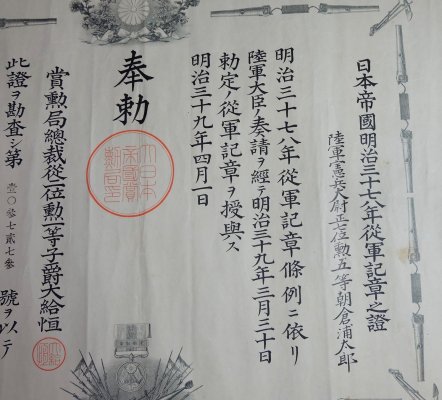 日本帝國明治三十七八年從軍記章之證
陸軍憲兵大尉正七位勲五等朝倉浦太郎
明治三十七八年從軍記章條例ニ依リ
陸軍大臣ノ奏請ヲ經テ明治三十九年三月三十日
勅定ノ從軍記章ヲ授與ス
明治三十九年四月一日
奉勅
大日本
帝國賞
勲局印
賞勲局總裁從二位勲一等子爵大給恒
此證ヲ勘査シ第壹〇參七貳七參號ヲ以テ